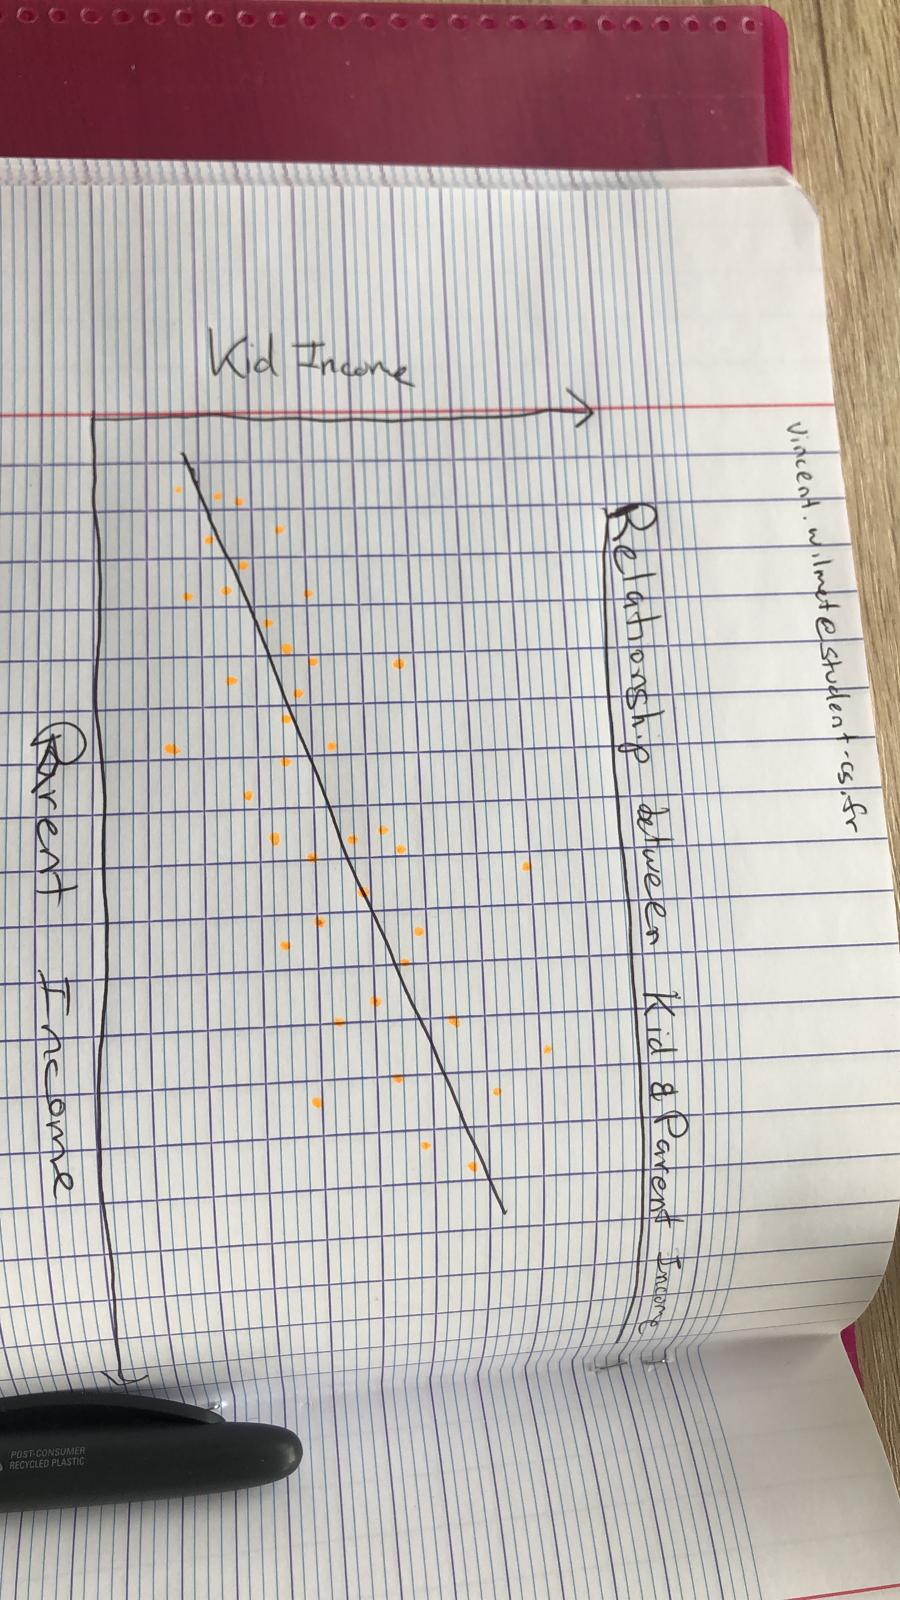 vincent.wilmet@student-cs.fr
Relationship between Kid & Parent Income
Kid Income
Parent Income
POST-CONSUMER
RECYCLED PLASTIC